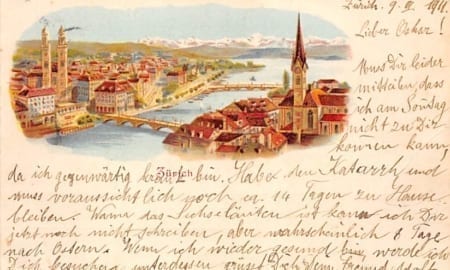 Zürich. 9. III. 1911.
Lieber Oskar!
Muss Dir leider
mitteilen, dass
ich am Sonntag
nicht zu Dir
kommen kann,
Zürich
da ich gegenwärtig krank bin. Habe den Katarrh und
muss voraussichtlich noch ca. 14 Tagen zu Hause
bleiben. Wann das Sechseläuten ist kann ich Dir
jetzt noch nicht schreiben, aber wahrscheinlich 8 Tage
nach Ostern. Wenn ich wieder gesund bin, werde ich
Dich besuchen, unterdessen grüsst Dich Dein